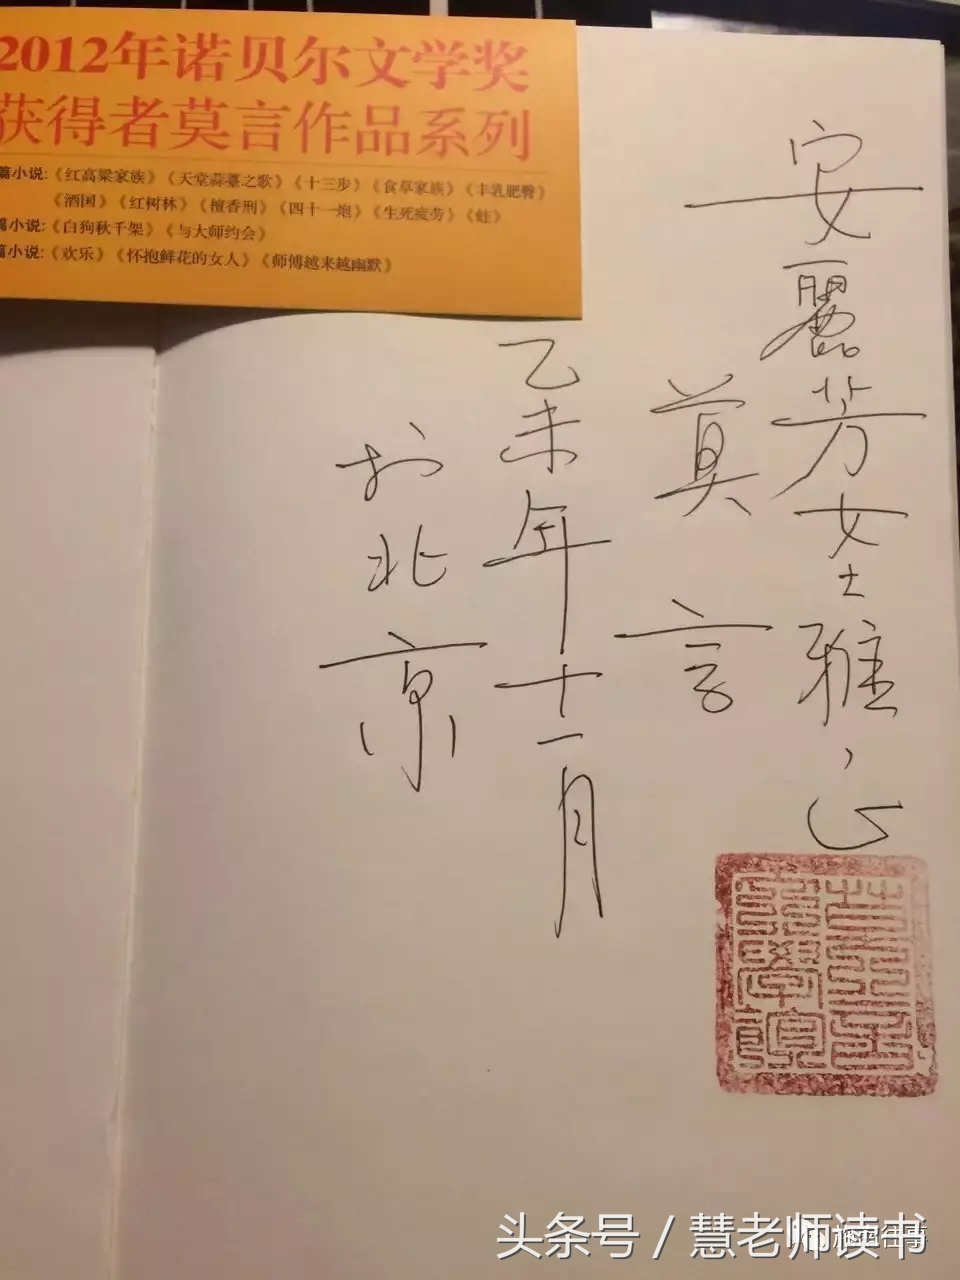 2012年诺贝尔文学奖
获得者莫言作品系列
篇小说:《红高粱家族》《天堂蒜薹之歌》《十三步》《食草家族》《丰乳肥臀》
《酒国》《红树林》《檀香刑》《四十一炮》《生死疲劳》《蛙》
篇小说:《白狗秋千架》《与大师约会》
篇小说:《欢乐》《怀抱鲜花的女人》《师傅越来越幽默》
安麗芳女士雅正
莫言
乙未年十一月
於北京
头条号 / 慧老师读书